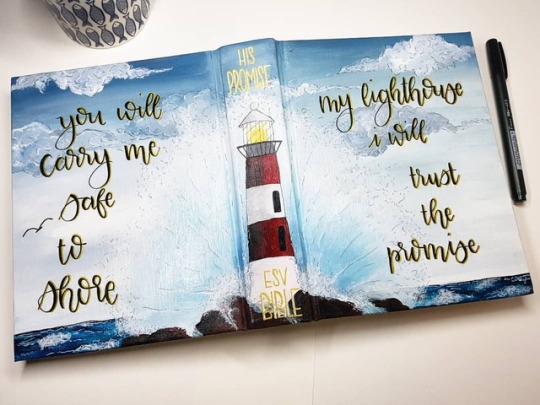 you will
carry me
safe
to
shore
HIS
PROMISE
ESV
BIBLE
my lighthouse
i will
trust
the
promise